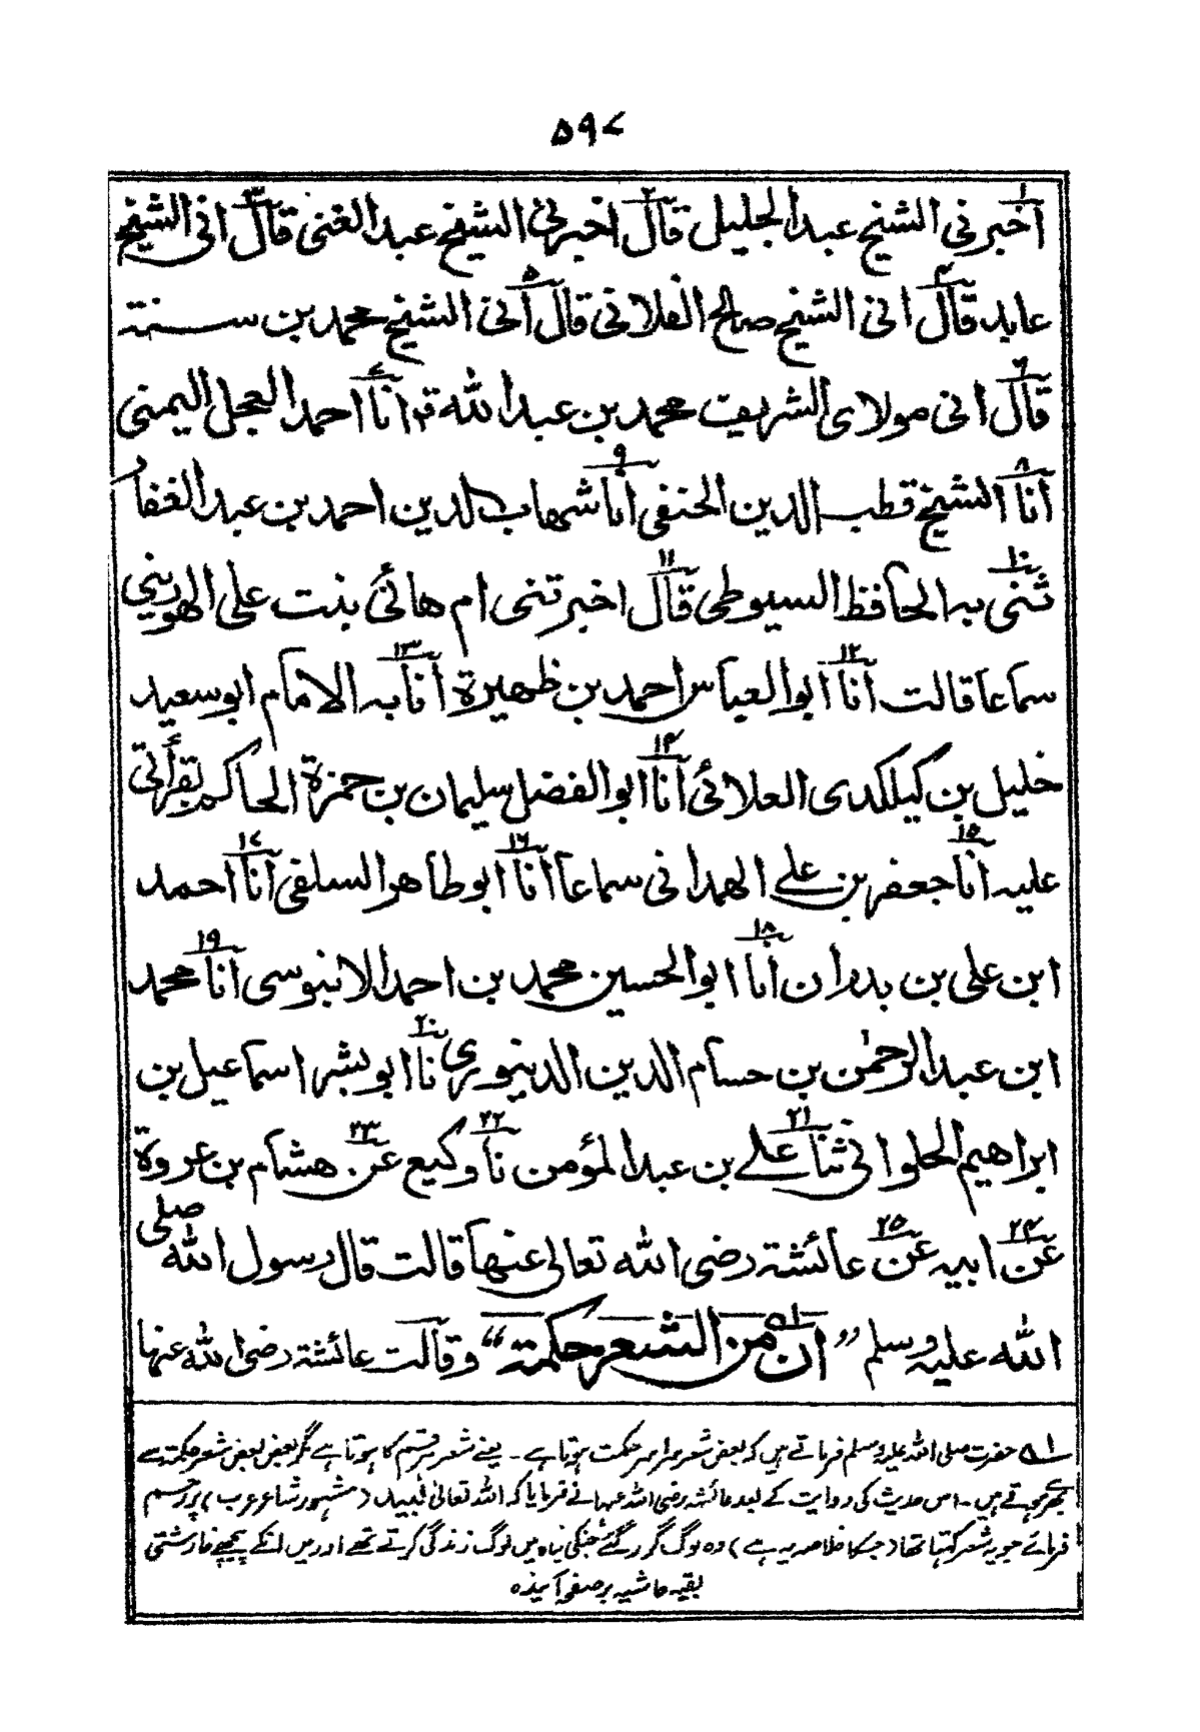 ۵۹۷
اخبرنی الشیخ عبدالجلیل قال اخبرنی الشیخ عبدالغنی قال انی الشیخ
عابد قال انی الشیخ صالح الفلانی قال انی الشیخ محمد بن سنۃ
قال انی مولای الشریف محمد بن عبداللہ انا احمد العجل الیمنی
انا الشیخ قطب الدین الحنفی انا شھاب الدین احمد بن عبدالغفار
ثنی بہ الحافظ السیوطی قال اخبرتنی ام ھانئ بنت علی الھورینی
سماعا قالت انا ابوالعباس احمد بن ظھیرۃ انا بہ الامام ابو سعید
خلیل بن کیکلدی العلائی انا ابوالفضل سلیمان بن حمزۃ الحاکم بقرأتی
علیہ انا جعفر بن علے الھمدانی سماعاً انا ابو طاھر السلفی انا احمد
ابن علی بن بدران انا ابوالحسین محمد بن احمد الابنوسی انا محمد
ابن عبدالرحمٰن بن حسام الدین الدینوری نا ابو بشر اسماعیل بن
ابراھیم الحلوانی ثنا علے بن عبدالمؤمن نا وکیع عن ھشام بن عروۃ
عن ابیہ عن عائشۃ رضی اللہ تعالی عنھا قالت قال رسول اللہ صلی
اللہ علیہ وسلم ”ان من الشعر حکمۃ“ وقالت عائشۃ رضی اللہ عنہا
حضرت صلی اللہ علیہ وسلم فرماتے ہیں کہ بعض شعر سراسر حکمت ہوتا ہے ۔ یعنے شعر ہر قسم کا ہوتا ہے مگر بعض بعض شعر حکمت سے
بھرے ہوتے ہیں ۔ اس حدیث کی روایت کے بعد عائشہ رضی اللہ عنہا نے فرمایا کہ اللہ تعالیٰ لبید (مشہور شاعر عرب) پر رحم
فرمائے جو یہ شعر کہتا تھا (جسکا خلاصہ یہ ہے) وہ لوگ گزر گئے جنکی پناہ میں لوگ زندگی کرتے تھے اور میں انکے پیچھے خارشتی
بقیہ حاشیہ بر صفحہ آئیندہ